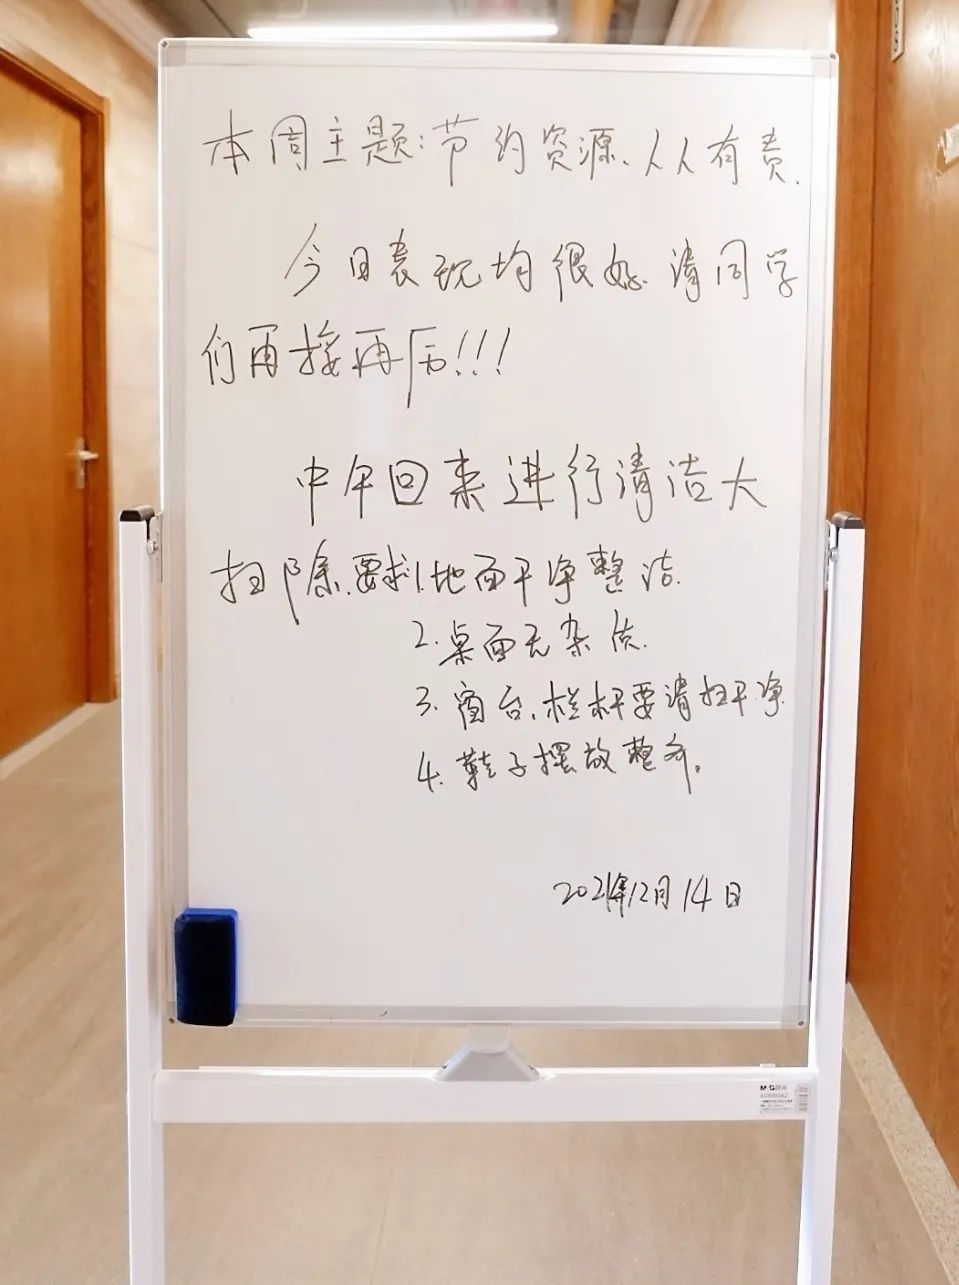 本周主题:节约资源、人人有责.
今日表现均很好.请同学
们再接再厉!!!
中午回来进行清洁大
扫除.要求1.地面干净整洁.
2.桌面无杂质.
3.窗台、栏杆要清扫干净.
4.鞋子摆放整齐。
2021年12月14日
M&G